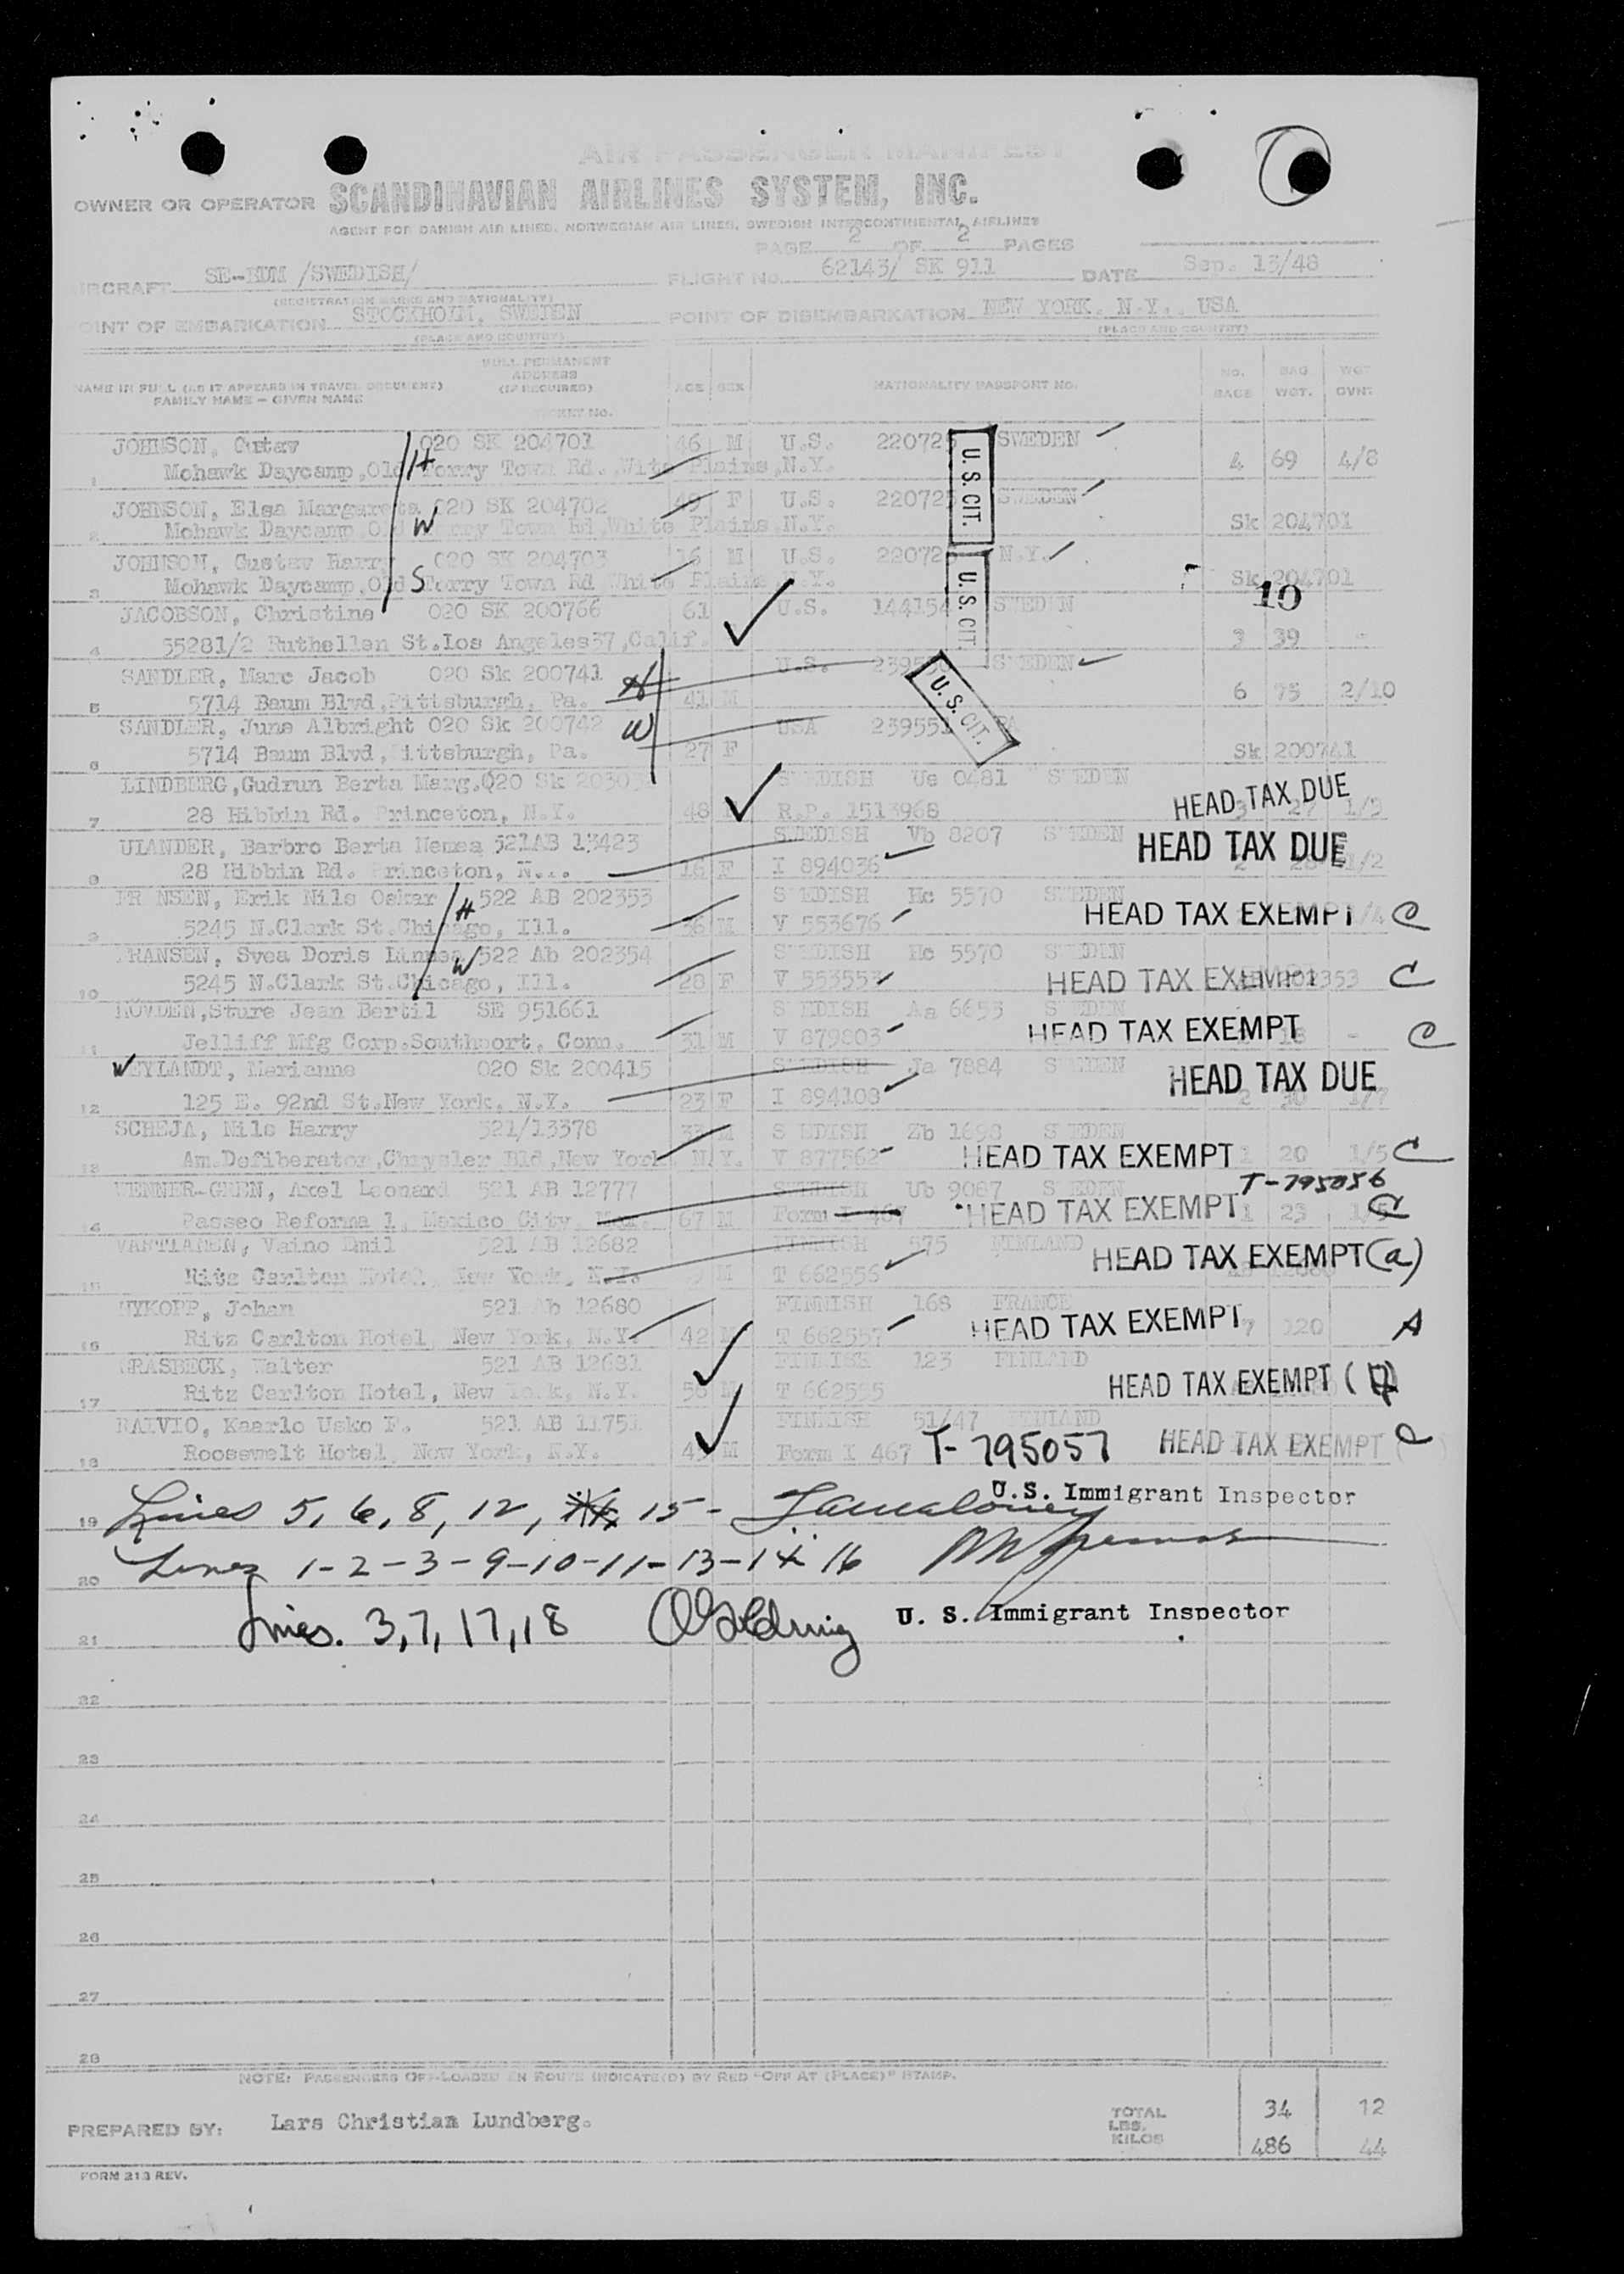 AIR PASSENGER MANIFEST
OWNER OR OPERATOR SCANDINAVIAN AIRLINES SYSTEM, INC.
AGENT FOR DANISH AIR LINES, NORWEGIAN AIR LINES, SWEDISH INTERCONTINENTAL AIRLINES
PAGE 2 OF 2 PAGES
AIRCRAFT SE-BDM /SWEDISH/ FLIGHT No. 62143/ SK 911 DATE Sep. 13/48
(REGISTRATION MARKS AND NATIONALITY)
POINT OF EMBARKATION STOCKHOLM, SWEDEN POINT OF DISEMBARKATION NEW YORK, N.Y., USA
(PLACE AND COUNTRY) (PLACE AND COUNTRY)
NAME IN FULL (AS IT APPEARS IN TRAVEL DOCUMENT) FULL PERMANENT ADDRESS (IF REQUIRED) AGE SEX NATIONALITY PASSPORT NO. NO. BAGS BAG WGT. WGT OVHT
FAMILY NAME - GIVEN NAME TICKET NO.
JOHNSON, Gustav 020 SK 204701 46 M U.S. 22072 SWEDEN
1 Mohawk Daycamp,Old Torry Town Rd. Wite Plains,N.Y. H 4 69 4/8
JOHNSON, Elsa Margareta 020 SK 204702 49 F U.S. 22072 SWEDEN
2 Mohawk Daycamp,Old Torry Town Rd,White Plains N.Y. W Sk 204701
U.S. CIT.
JOHNSON, Gustav Harry 020 SK 204703 16 M U.S. 22072 N.Y.
3 Mohawk Daycamp,Old Torry Town Rd White Plains N.Y. S Sk 204701
JACOBSON, Christine 020 SK 200766 61 U.S. 144154 SWEDEN 10
4 55281/2 Ruthellen St.Los Angeles37,Calif. 3 39 -
U.S. CIT.
SANDLER, Marc Jacob 020 Sk 200741 U.S. SWEDEN
5 5714 Baum Blvd,Pittsburgh, Pa. H 41 M 6 75 2/10
SANDLER, June Albright 020 Sk 200742 USA 239551 PA
6 5714 Baum Blvd, ittsburgh, Pa. W 27 F Sk 200741
U.S. CIT.
LINDBERG,Gudrun Berta Marg. 020 Sk SWEDISH Ue 0481 SWEDEN
7 28 Hibbin Rd. Princeton, N.Y. 48 R.P. 1513968 HEAD TAX DUE 3 27 1/3
ULANDER, Barbro Berta Nenea 521AB 13423 SWEDISH Vb 8207 SWEDEN
8 28 Hibbin Rd. Princeton, N... 16 F I 894036 HEAD TAX DUE 2 28 1/2
FR NSEN, Erik Nils Oskar 522 AB 202353 SWEDISH Hc 5570 SWEDEN
9 5245 N.Clark St.Chicago, Ill. H 36 M V 553676 HEAD TAX EXEMPT C
FRANSEN, Svea Doris Linnea 522 Ab 202354 SWEDISH Hc 5570 SWEDEN
10 5245 N.Clark St.Chicago, Ill. W 28 F V 553553 HEAD TAX EXEMPT C
HOVDEN,Sture Jean Bertil SE 951661 SWEDISH Aa 6653 SWEDEN
11 Jelliff Mfg Corp.Southport, Conn. 31 M V 879803 HEAD TAX EXEMPT C
WEYLANDT, Marianne 020 Sk 200415 SWEDISH Ja 7884 SWEDEN
12 125 E. 92nd St.New York, N.Y. 23 F I 894108 HEAD TAX DUE 2 30 1/7
SCHEJA, Nils Harry 521/13378 33 M SWEDISH Zb 1698 SWEDEN
13 Am.Defiberator,Chrysler Bld,New York N.Y. V 877562 HEAD TAX EXEMPT 1 20 1/5 C
WENNER-GREN, Axel Leonard 521 AB 12777 SWEDISH Ub 9087 SWEDEN T-795056
14 Passeo Reforma 1, Mexico City, Mex. 67 M Form I 467 HEAD TAX EXEMPT 1 23 1/5 C
VARTIAINEN, Vaino Emil 521 AB 12682 FINNISH 575 FINLAND
15 Ritz Carlton Hotel, New York, N.Y. M T 662556 HEAD TAX EXEMPT (a)
NYKOPP, Johan 521 Ab 12680 FINNISH 168 FRANCE
16 Ritz Carlton Hotel, New York, N.Y. 42 M T 662557 HEAD TAX EXEMPT 7 120 A
GRASBECK, Walter 521 AB 12681 FINNISH 123 FINLAND
17 Ritz Carlton Hotel, New York, N.Y. 56 M T 662555 HEAD TAX EXEMPT
RAIVIO, Kaarlo Usko F. 521 AB 11751 FINNISH 51/47 FINLAND
18 Roosewelt Hotel, New York, N.Y. M Form I 467 T-795057 HEAD TAX EXEMPT C
U.S. Immigrant Inspector
19 Lines 5, 6, 8, 12, 15 -
20 Lines 1-2-3-9-10-11-13-14 16
21 Lines. 3,7,17,18 U. S. Immigrant Inspector
22
23
24
25
26
27
28
NOTE: PASSENGERS OFF-LOADED EN ROUTE INDICATE(D) BY RED "OFF AT (PLACE)" STAMP.
PREPARED BY: Lars Christian Lundberg. TOTAL 34 12
LBS.
KILOS 486 44
FORM 213 REV.